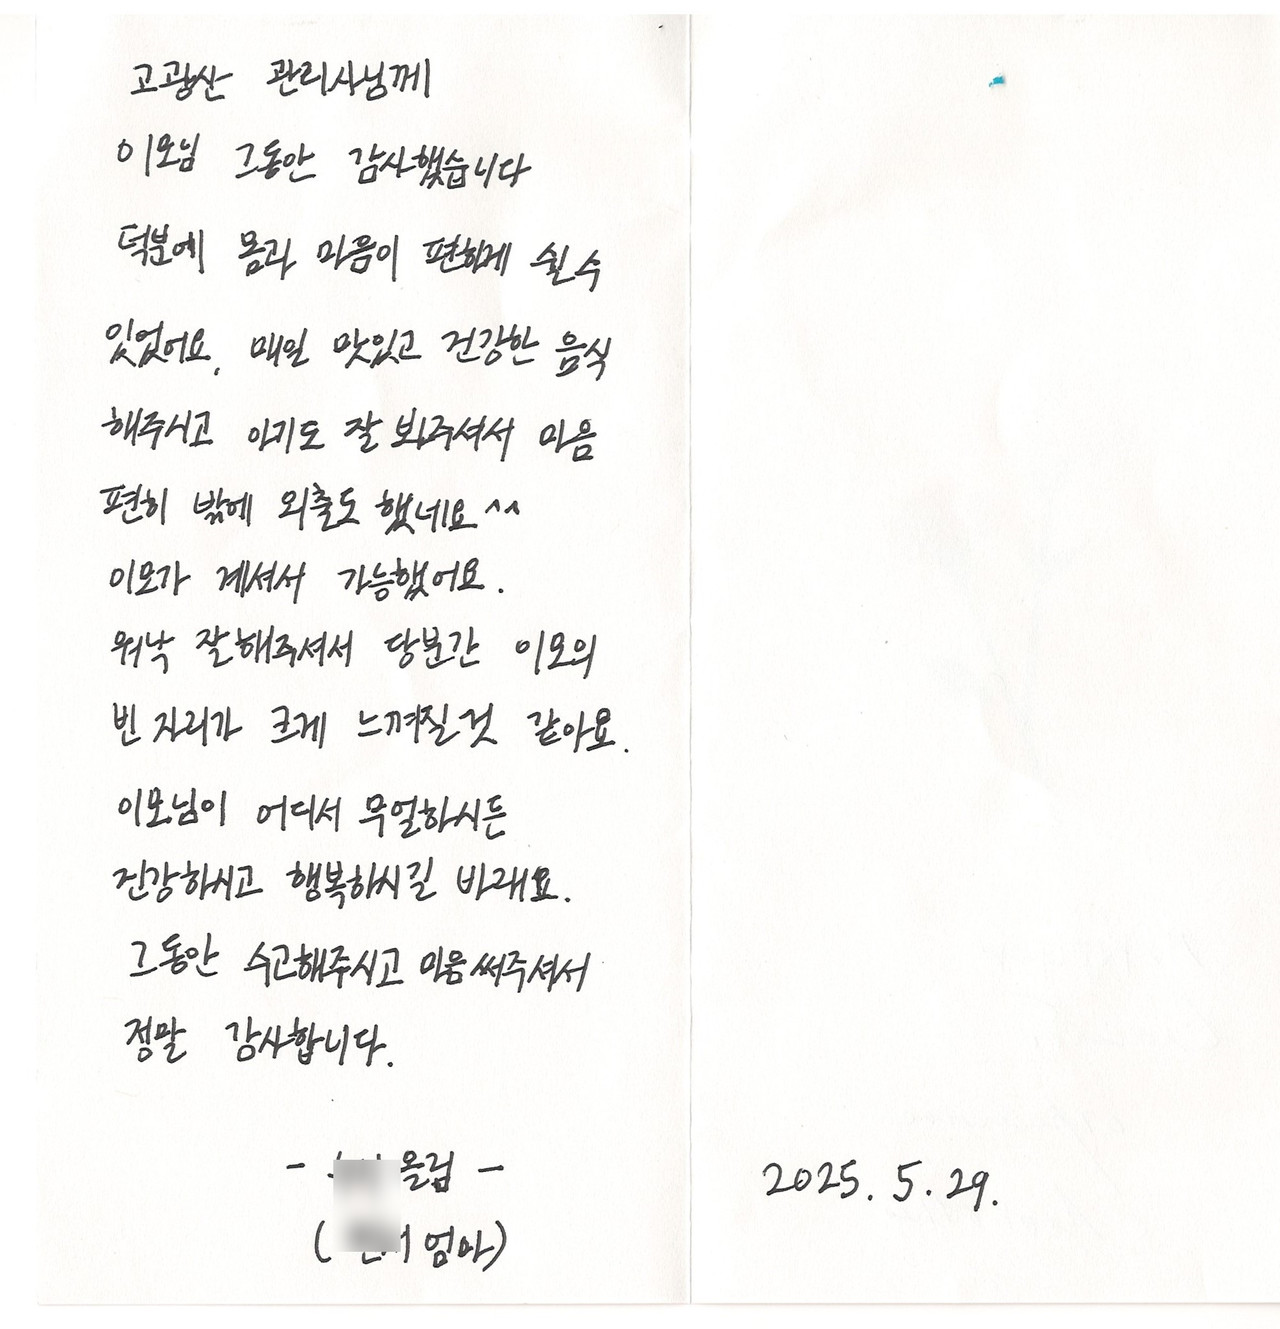 고광산 관리사님께
이모님 그동안 감사했습니다
덕분에 몸과 마음이 편하게 쉴 수
있었어요. 매일 맛있고 건강한 음식
해주시고 아기도 잘 봐주셔서 마음
편히 밖에 외출도 했네요^^
이모가 계셔서 가능했어요.
워낙 잘해주셔서 당분간 이모의
빈 자리가 크게 느껴질것 같아요.
이모님이 어디서 무얼하시든
건강하시고 행복하시길 바래요.
그동안 수고해주시고 마음써주셔서
정말 감사합니다.
- 올림 -
( 엄마)
2025. 5. 29.